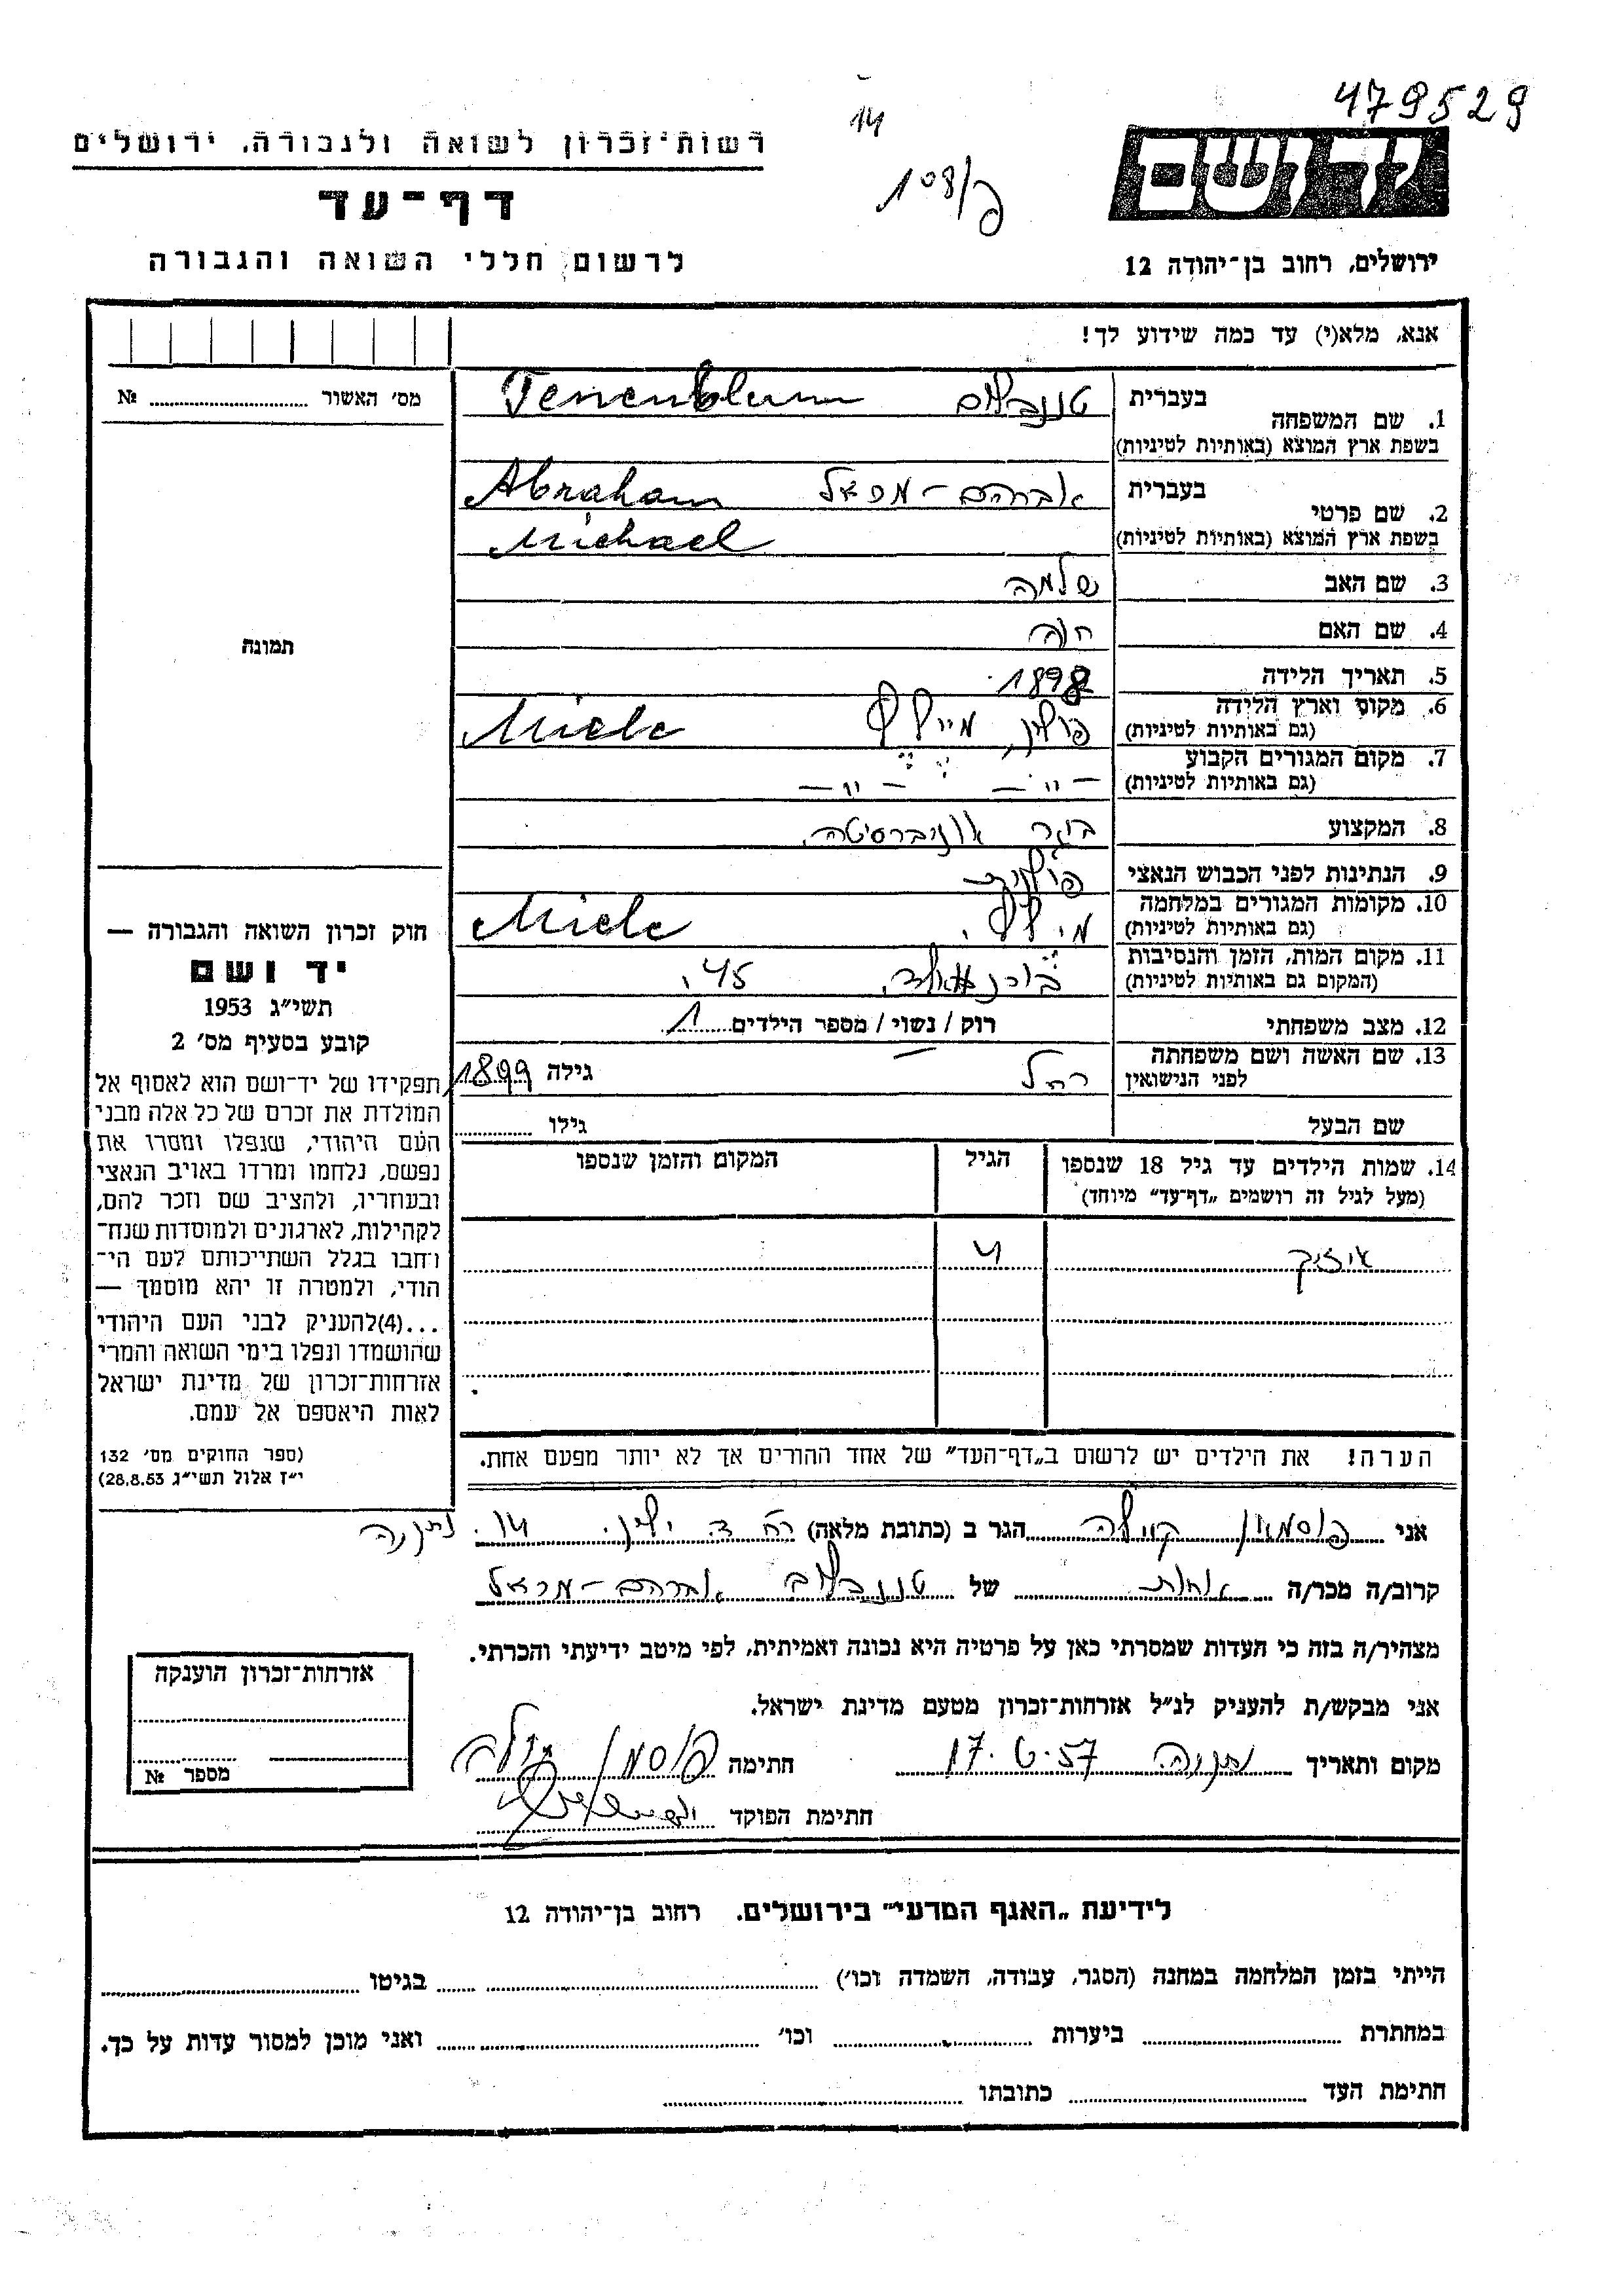 479529
14
פ/108
ידושם
רשות־זכרון לשואה ולגבורה, ירושלים
דף־עד
לרשום חללי השואה והגבורה
ירושלים, רחוב בן־יהודה 12
אנא, מלא(י) עד כמה שידוע לך!
מס׳ האשור № 
תמונה
1. שם המשפחה בעברית טננבלום Tenenblum
בשפת ארץ המוצא (באותיות לטיניות)
2. שם פרטי בעברית אברהם-מכאל Abraham
בשפת ארץ המוצא (באותיות לטיניות) Michael
3. שם האב שלמה
4. שם האם חוה
5. תאריך הלידה 1898
6. מקום וארץ הלידה פולין, Miele
(גם באותיות לטיניות)
7. מקום המגורים הקבוע — " — — " —
(גם באותיות לטיניות)
8. המקצוע בוגר אוניברסיטה
9. הנתינות לפני הכבוש הנאצי פולנית
10. מקומות המגורים במלחמה Miele
(גם באותיות לטיניות)
11. מקום המות, הזמן והנסיבות 45
(המקום גם באותיות לטיניות)
12. מצב משפחתי רוק / נשוי / מספר הילדים 1
13. שם האשה ושם משפחתה רחל גילה 1899
לפני הנישואין
שם הבעל גילו
14. שמות הילדים עד גיל 18 שנספו הגיל המקום והזמן שנספו
(מעל לגיל זה רושמים „דף־עד" מיוחד)
איזיק 4
הערה! את הילדים יש לרשום ב„דף־העד" של אחד ההורים אך לא יותר מפעם אחת.
חוק זכרון השואה והגבורה —
יד ושם
תשי״ג 1953
קובע בסעיף מס׳ 2
תפקידו של יד־ושם הוא לאסוף אל
המולדת את זכרם של כל אלה מבני
העם היהודי, שנפלו ומסרו את
נפשם, נלחמו ומרדו באויב הנאצי
ובעוזריו, ולהציב שם וזכר להם,
לקהילות, לארגונים ולמוסדות שנח־
רבו בגלל השתייכותם לעם הי־
הודי, ולמטרה זו יהא מוסמך —
...(4)להעניק לבני העם היהודי
שהושמדו ונפלו בימי השואה והמרי
אזרחות־זכרון של מדינת ישראל
לאות היאספם אל עמם.
(ספר החוקים מס׳ 132
י״ז אלול תשי״ג 28.8.53)
אני פוסמן הגר ב (כתובת מלאה) רח 14. נתניה
קרוב/ה מכר/ה אחות של טננבלום אברהם-מכאל
מצהיר/ה בזה כי העדות שמסרתי כאן על פרטיה היא נכונה ואמיתית, לפי מיטב ידיעתי והכרתי.
אני מבקש/ת להעניק לנ״ל אזרחות־זכרון מטעם מדינת ישראל.
מקום ותאריך נתניה 17.6.57 חתימה פוסמן
חתימת הפוקד
אזרחות־זכרון הוענקה
מספר №
לידיעת „האגף המדעי" בירושלים. רחוב בן־יהודה 12
הייתי בזמן המלחמה במחנה (הסגר, עבודה, השמדה וכו׳) בגיטו
במחתרת ביערות וכו׳ ואני מוכן למסור עדות על כך.
חתימת העד כתובתו